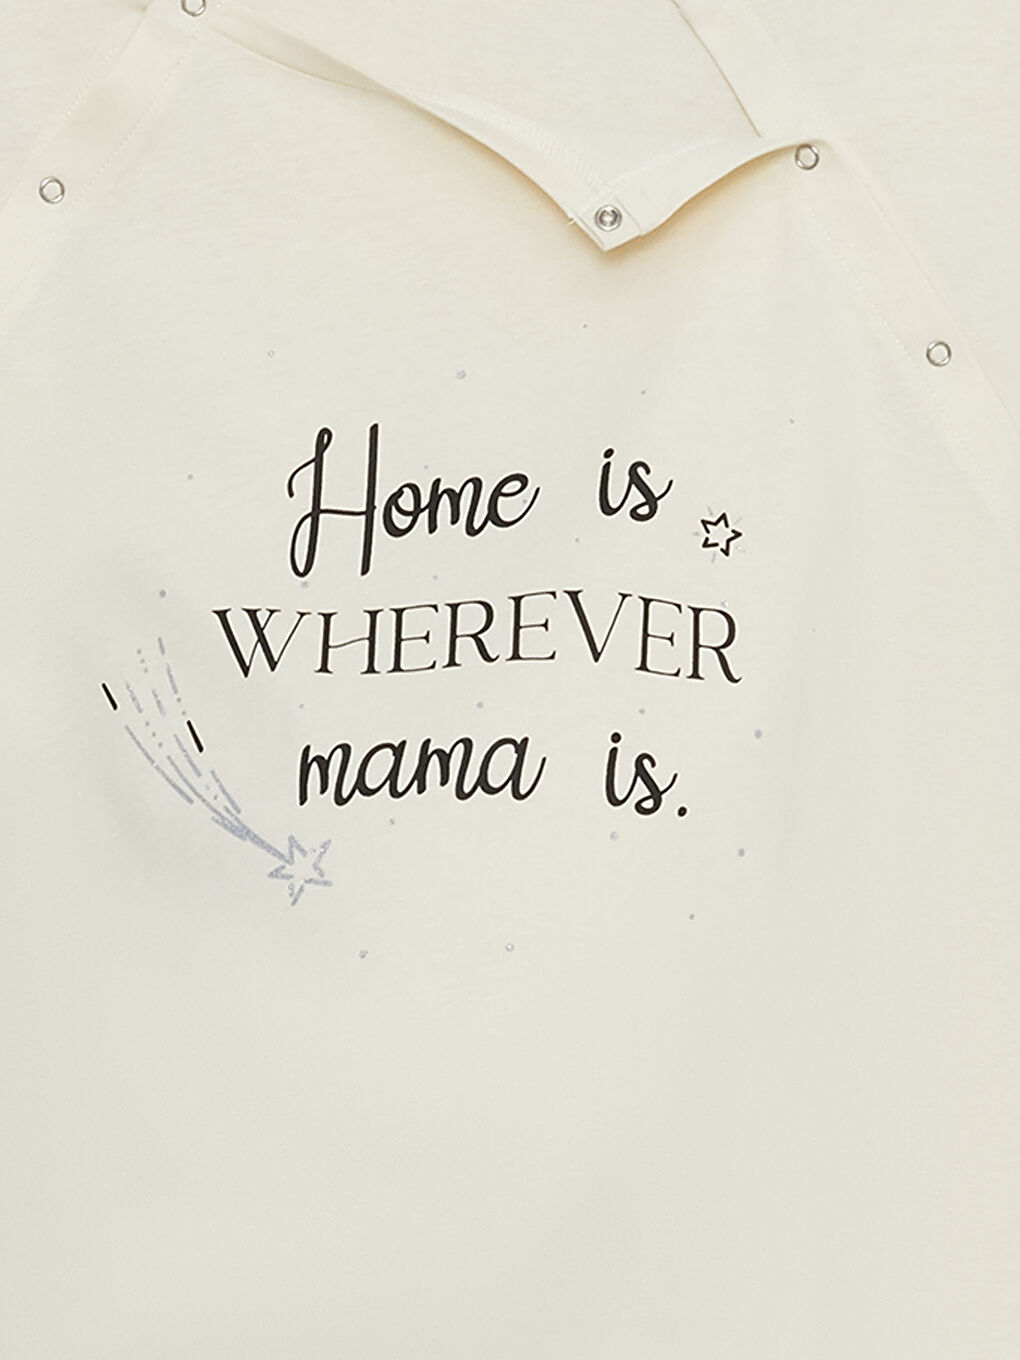 Home is
WHEREVER
mama is.